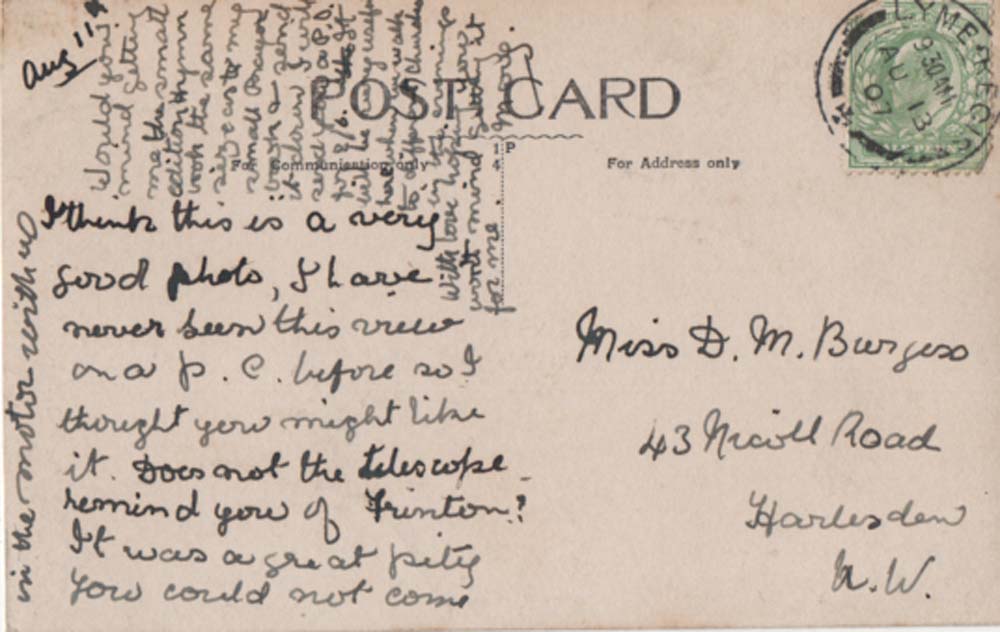 Aug 11th
POST CARD
For Communication only
For Address only
LYME REGIS
9.30AM
AU 13
07
I think this is a very
good photo, I have
never seen this view
on a P. C. before so I
thought you might like
it. Does not the telescope
remind you of Frinton?
It was a great pity
you could not come
in the motor with us
Would you
mind getting
me the small
edition hymn
book the same
size as to my
small Prayer
book & send
it when I will
send you a P.O.
for it
will be very useful
here when we walk
to different churches
in the evenings
With love hoping you
wont mind getting it
for me
Miss D. M. Burgess
43 Nicoll Road
Harlesden
N.W.